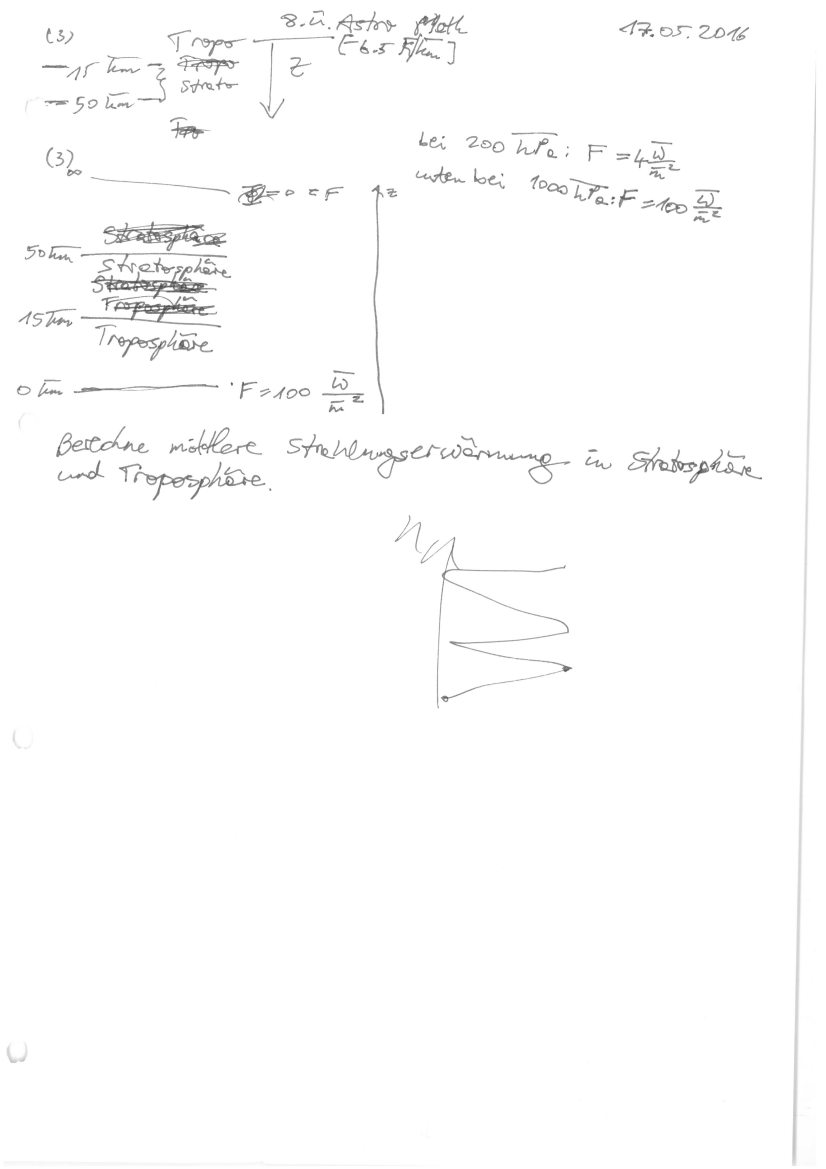 8. Ü. Astro
17.05.2016
(3)
Tropo
[-6.5 K/km]
15 km
Tropo
z
Strato
50 km
Tro
bei 200 hPa: F = 4 W/m²
unten bei 1000 hPa: F = 100 W/m²
(3)
∞
= 0 = F
z
Stratosphäre
50 km
Stratosphäre
Stratosphäre
Troposphäre
15 km
Troposphäre
0 km
F = 100 W/m²
Berechne mittlere Strahlungserwärmung in Stratosphäre
und Troposphäre.